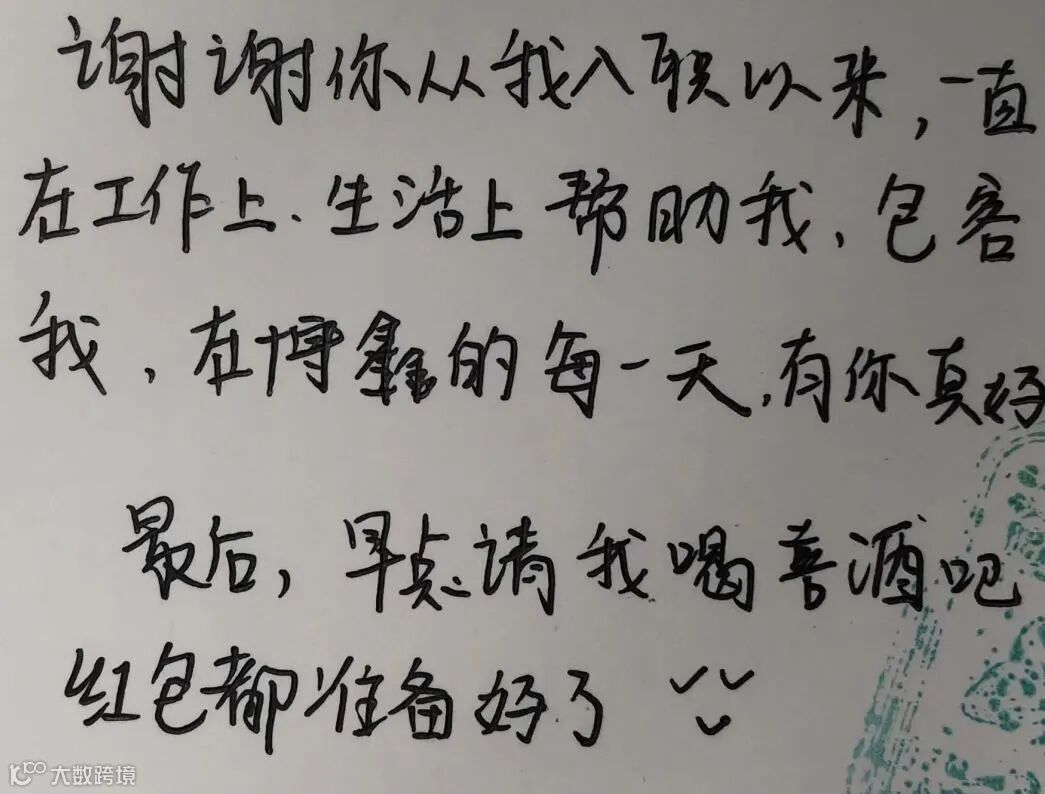 谢谢你从我入职以来，一直
在工作上、生活上帮助我、包容
我、在博鑫的每一天，有你真好
最后，早点请我喝喜酒吧
红包都准备好了
大数跨境